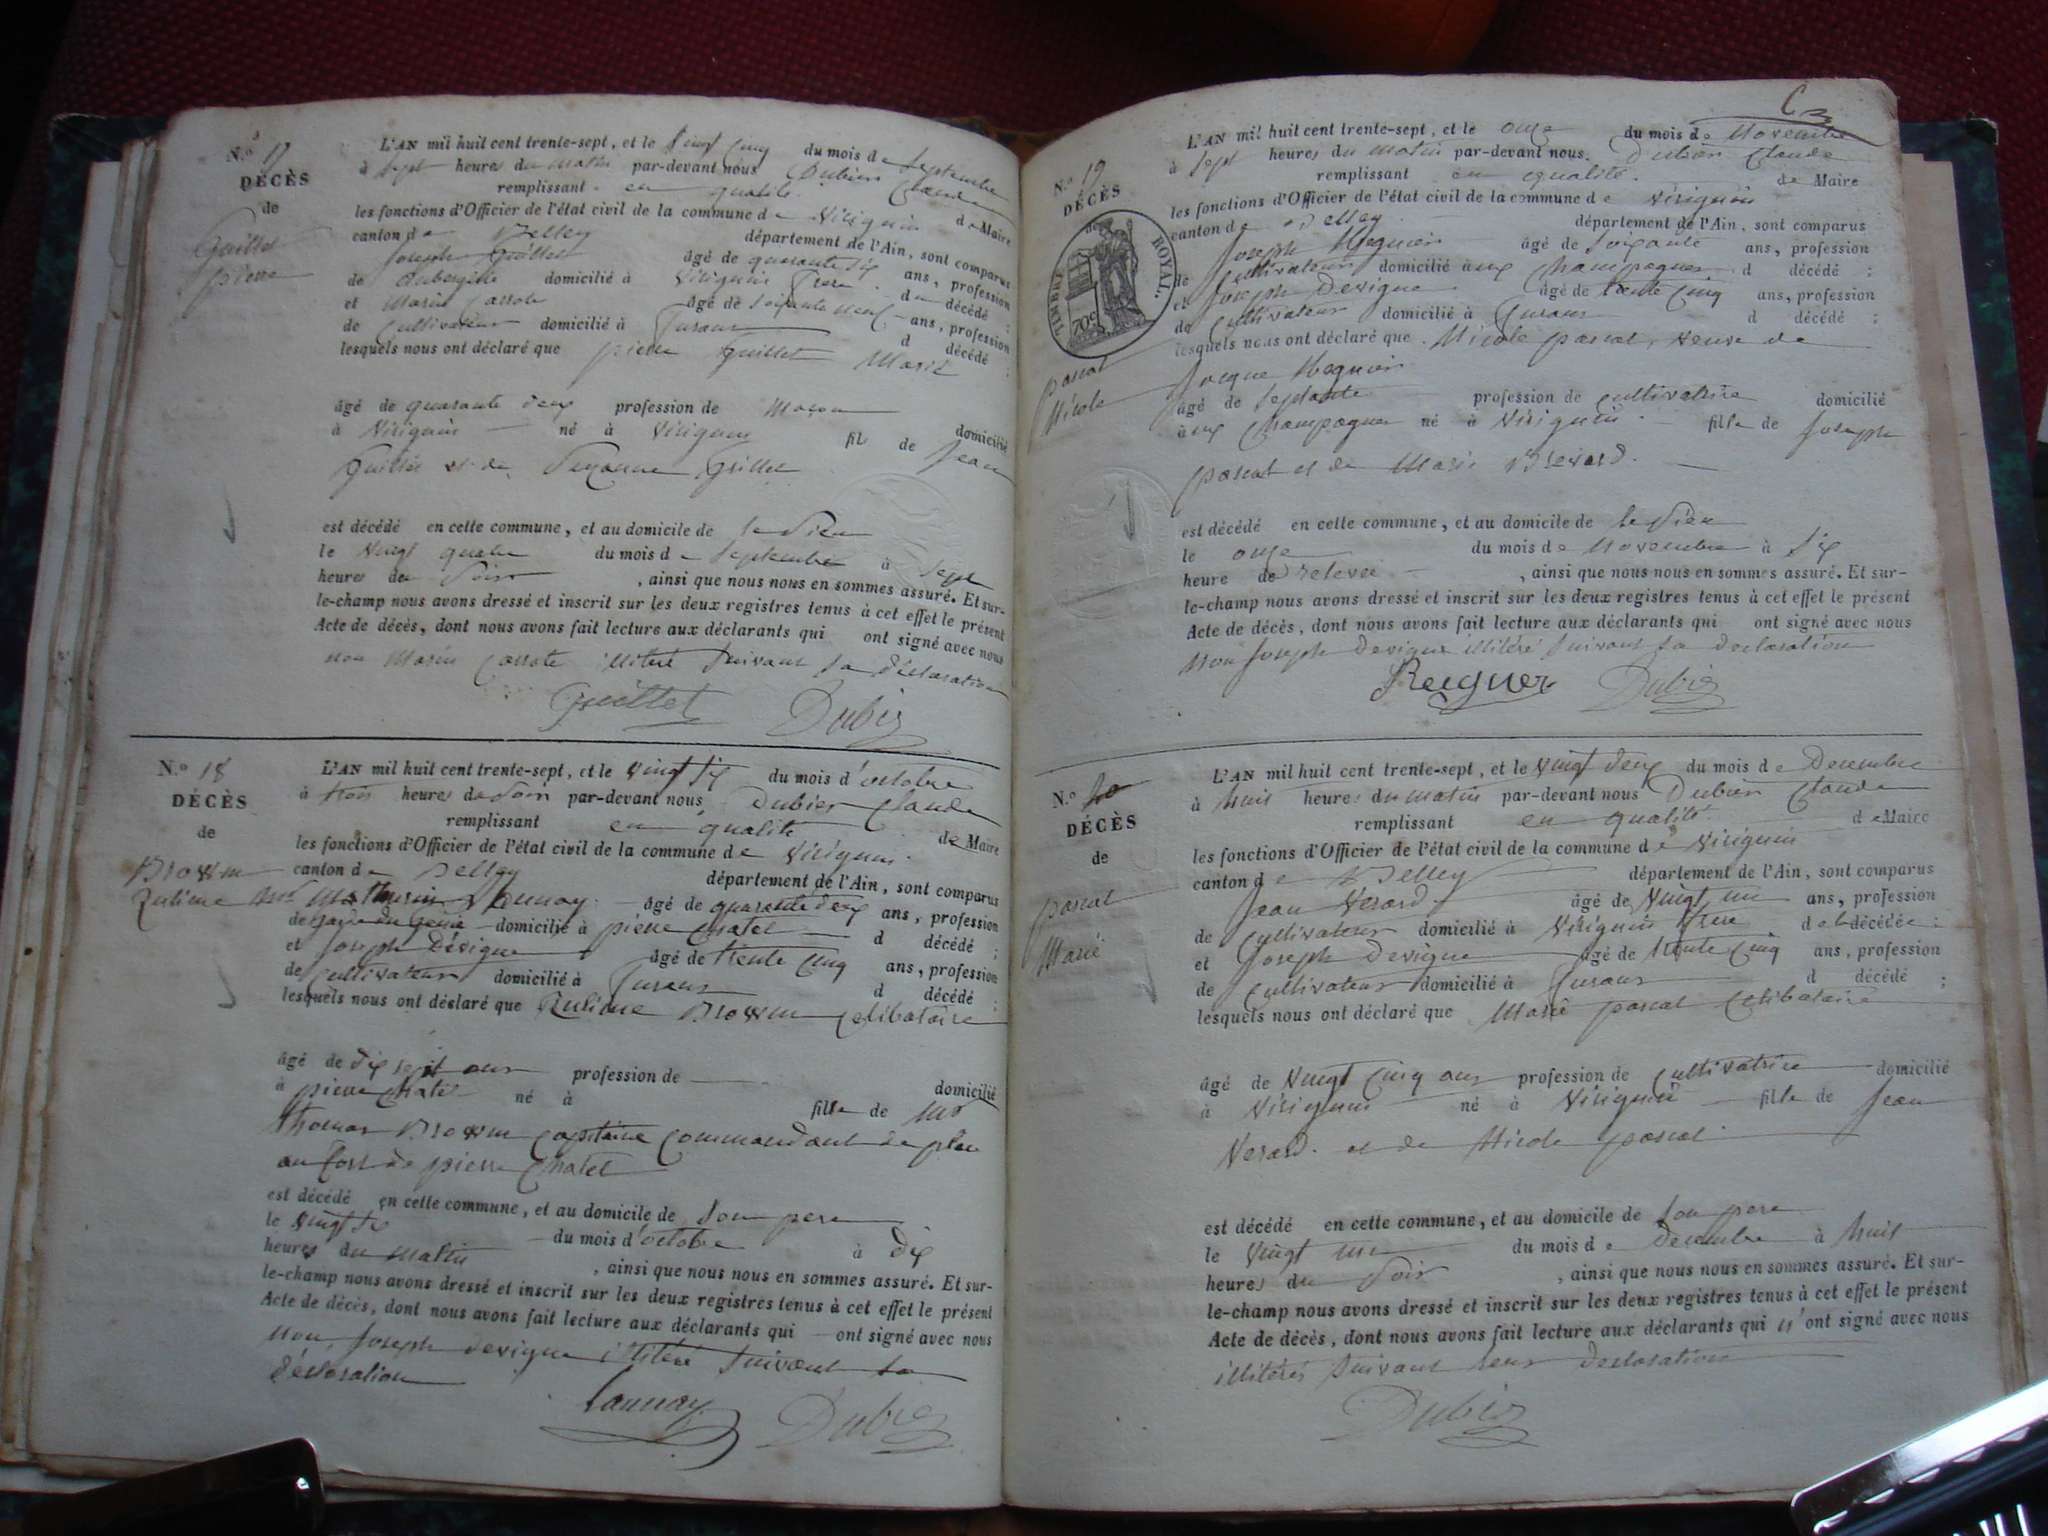 N.º 17
DÉCÈS
de
Guillet
pierre
L'AN mil huit cent trente-sept, et le vingt cinq du mois de Septembre
à sept heures du matin par-devant nous Dubier Claude
remplissant en qualité de Maire
les fonctions d'Officier de l'état civil de la commune de Virignin
canton de Belley département de l'Ain, sont comparus
Joseph Guillet âgé de quarante six ans, profession
de domicilié à Virignin frere du décédé ;
et Marin âgé de soixante neuf ans, profession
de Cultivateur domicilié à d décédé ;
lesquels nous ont déclaré que pierre Guillet Marié
âgé de quarante deux profession de Maçon domicilié
à Virignin né à Virignin fils de Jean
Guillet et de Suzanne Grillet
est décédé en cette commune, et au domicile de le Sien
le vingt quatre du mois de Septembre à Sept
heures du Soir, ainsi que nous nous en sommes assuré. Et sur-
le-champ nous avons dressé et inscrit sur les deux registres tenus à cet effet le présent
Acte de décès, dont nous avons fait lecture aux déclarants qui ont signé avec nous
non Marin illitéré Suivant Sa déclaration
Guillet Dubier
N.º 18
DÉCÈS
de
L'AN mil huit cent trente-sept, et le vingt six du mois d'octobre
à trois heures de Soir par-devant nous Dubier Claude
remplissant en qualité de Maire
les fonctions d'Officier de l'état civil de la commune de Virignin
canton de Belley département de l'Ain, sont comparus
Mr Mathurin Launay âgé de quarante deux ans, profession
de garde du Génie domicilié à pierre Chatel d décédé ;
et Joseph Devigne âgé de trente cinq ans, profession
de Cultivateur domicilié à d décédé ;
lesquels nous ont déclaré que Célibataire
âgé de dix sept ans profession de domicilié
à pierre Chatel né à fille de Mr
thomas Capitaine Commandant de place
au fort de pierre Chatel
est décédé en cette commune, et au domicile de Son pere
le vingt six du mois d'octobre à dix
heures du matin, ainsi que nous nous en sommes assuré. Et sur-
le-champ nous avons dressé et inscrit sur les deux registres tenus à cet effet le présent
Acte de décès, dont nous avons fait lecture aux déclarants qui ont signé avec nous
non Joseph devigne illitéré Suivant Sa
déclaration
Launay Dubier
N.º 19
DÉCÈS
de
TIMBRE ROYAL.
70c
pascal
Nicole
L'AN mil huit cent trente-sept, et le onze du mois de Novembre
à sept heures du matin par-devant nous. Dubier Claude
remplissant en qualité de Maire
les fonctions d'Officier de l'état civil de la commune de Virignin
canton de Belley département de l'Ain, sont comparus
Joseph Regnier âgé de soixante ans, profession
de Cultivateur domicilié aux Champagnes d décédé ;
et Joseph Devigne âgé de trente cinq ans, profession
de Cultivateur domicilié à d décédé ;
lesquels nous ont déclaré que Nicole pascal, veuve de
Jacque Regnier
âgé de septante profession de cultivatrice domicilié
aux Champagnes né à Virignin fille de Joseph
pascal et de Marie
est décédé en cette commune, et au domicile de le Sien
le onze du mois de Novembre à six
heure de relevée, ainsi que nous nous en sommes assuré. Et sur-
le-champ nous avons dressé et inscrit sur les deux registres tenus à cet effet le présent
Acte de décès, dont nous avons fait lecture aux déclarants qui ont signé avec nous
non Joseph Devigne illitéré Suivant Sa déclaration
Reigner Dubier
N.º 20
DÉCÈS
de
pascal
Marie
L'AN mil huit cent trente-sept, et le vingt deux du mois de Decembre
à huit heures du matin par-devant nous Dubier Claude
remplissant en qualité de Maire
les fonctions d'Officier de l'état civil de la commune de Virignin
canton de Belley département de l'Ain, sont comparus
Jean Verard âgé de vingt un ans, profession
de Cultivateur domicilié à Virignin frere de la décédée ;
et Joseph Devigne âgé de trente cinq ans, profession
de Cultivateur domicilié à d décédé ;
lesquels nous ont déclaré que Marie pascal Célibataire
âgé de vingt cinq ans profession de Cultivatrice domicilié
à Virignin né à Virignin fille de Jean
Verard et de Nicole pascal
est décédé en cette commune, et au domicile de Son pere
le vingt un du mois de Decembre à huit
heures du Soir, ainsi que nous nous en sommes assuré. Et sur-
le-champ nous avons dressé et inscrit sur les deux registres tenus à cet effet le présent
Acte de décès, dont nous avons fait lecture aux déclarants qui n'ont signé avec nous
illitérés Suivant leur déclaration
Dubier